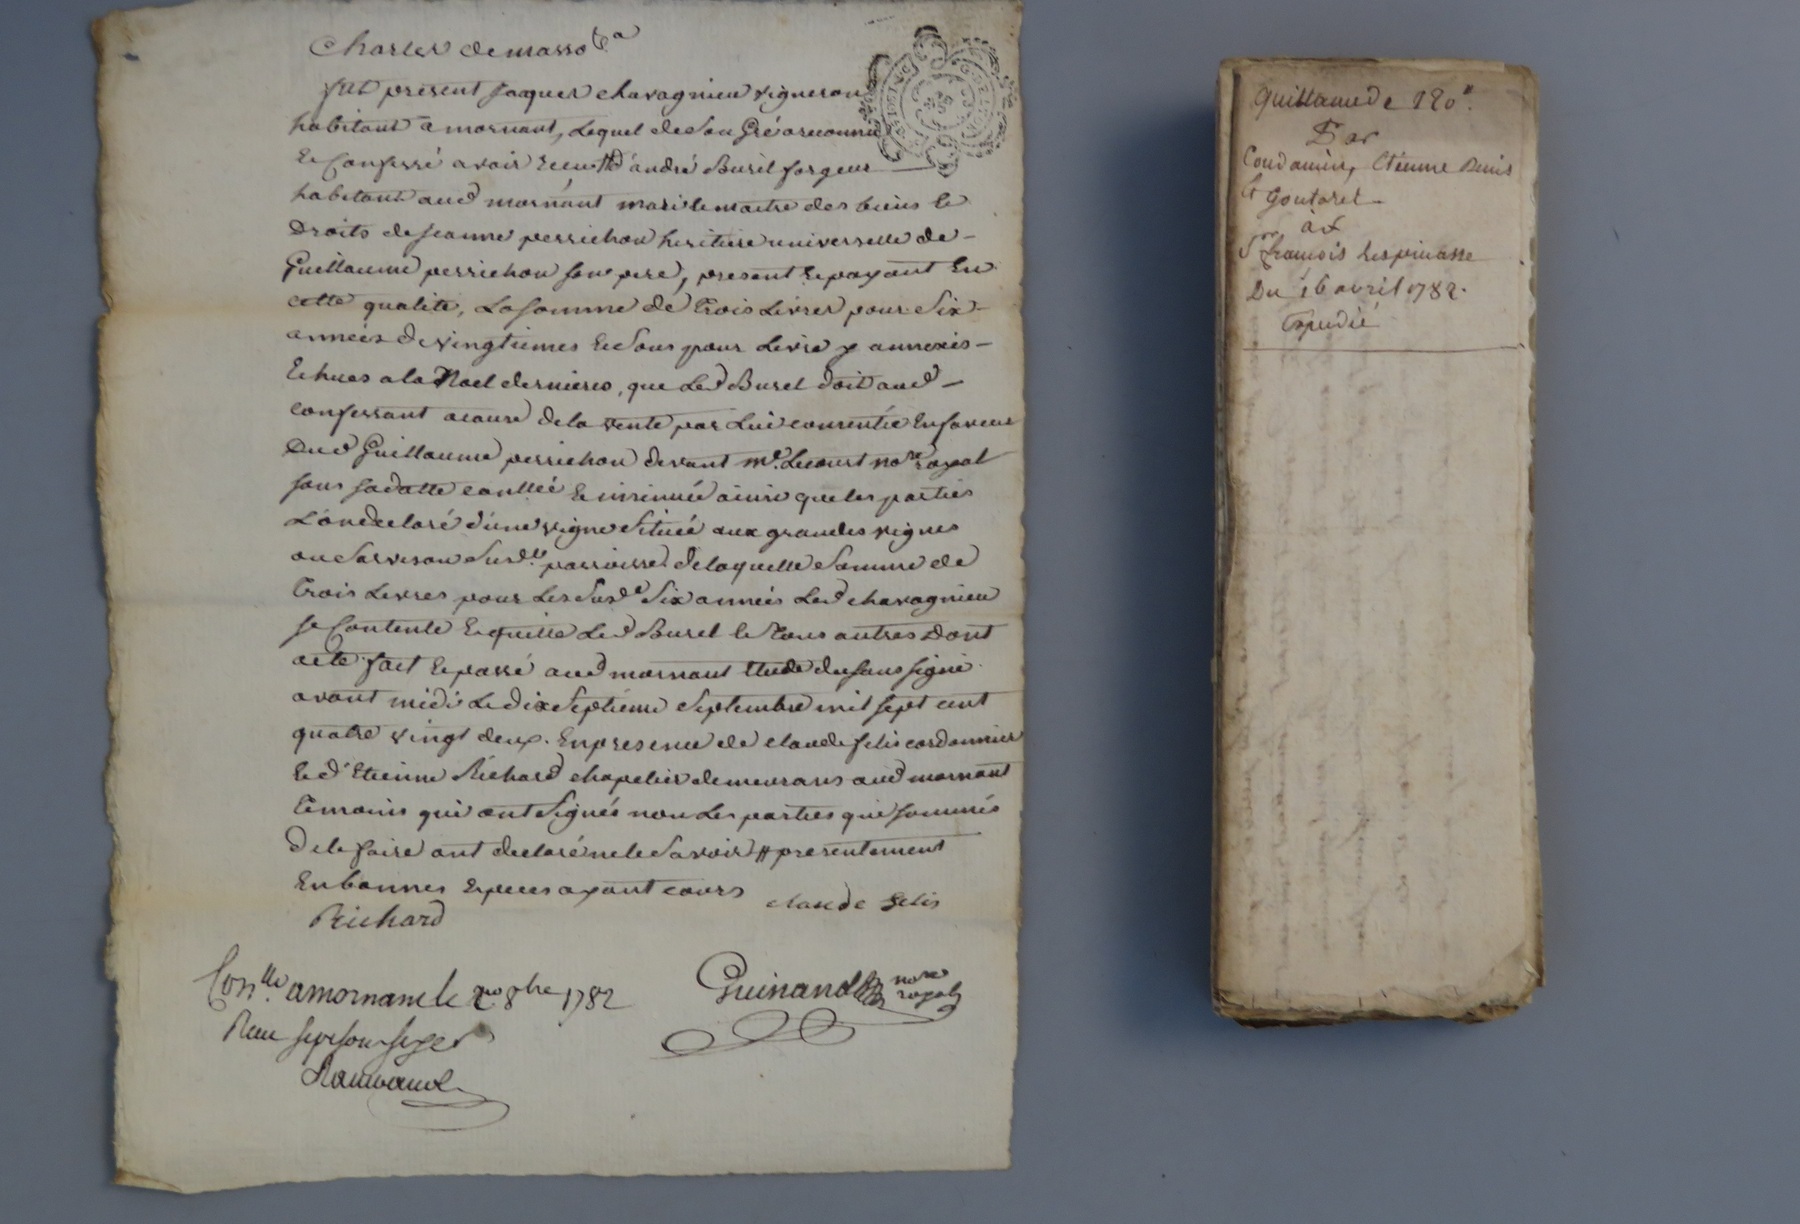 Charles demasso
fut présent Jaques chavagnieu vigneron
habitant a mornant, Lequel de Son Gré a reconnu
Et Confessé avoir Receu # d'andré Burel forgeur
habitant aud mornant mari Et maitre des biens Et
Droits de jeanne perrichon heritiere universelle de
Guillaume perrichon son pere, present Et payant En
cette qualité, La somme de trois Livres pour Six
années de vingtiemes Et Sous pour Livre y annexés
Echues a la Noel derniere, que Led Burel doit aud
confessant acause de la vente par Lui consentie En faveur
Dud Guillaume perrichon devant me. Lecourt nore royal
sous sa datte conllée Et insinuée ainsi que les parties
L'ont declaré d'une vigne Située aux grandes vignes
ou Sarveson Susde parroisse. de laquelle Somme de
trois Livres pour Les Susdes Six années Led chavagnieu
se Contente Et quitte Led Burel Et tous autres Dont
acte fait Et passé aud mornant Etude du sous signé
avant midi Le dix Septieme Septembre mil sept cent
quatre vingt deux. En presence de claude felis cordonnier
Et d'Etienne Richard chapelier demeurans aud mornant
temoins qui ont Signés non Les parties qui sommés
de le faire ont declaré ne le Savoir # presentement
En bonnes Especes ayant cours
claude felis
Richard
Guinand nore
royal
Conlle a mornant le 2 8bre 1782
Reçu sept sous
Guillaume de 120#.
Par
Condamin, Etienne Denis
Et Goutaret
à
Sr françois Lespinasse
Du 16 avril 1782.
Expedié